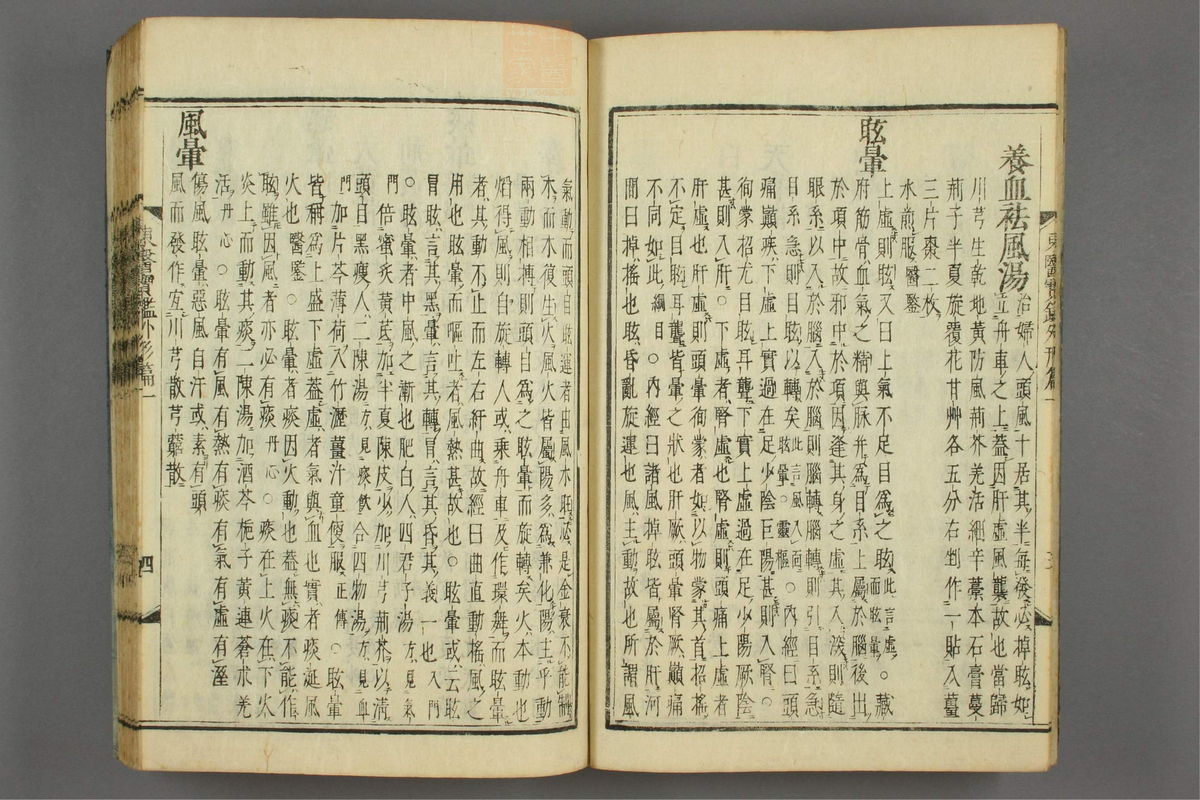 養血祛風湯
治婦人頭風十居其半每發必掉眩如
立舟車之上蓋因肝虛風襲故也當歸
川芎生乾地黃防風荊芥羌活細辛藁本石膏蔓
荊子半夏旋覆花甘艸各五分右剉作一貼入薑
三片棗二枚
水煎服醫鑒
眩暈
上虛則眩又曰上氣不足目爲之眩此言虛而眩暈○藏
府筋骨血氣之精與脉并爲目系上屬於腦後出
於項中故邪中於項因逢其身之虛其入深則隨
眼系以入於腦入於腦則腦轉腦轉則引目系急
目系急則目眩以轉矣此言風入而眩暈○靈樞○內經曰頭
痛巔疾下虛上實過在足少陰巨陽甚則入腎○
徇蒙招尤目眩耳聾下實上虛過在足少陽厥陰
甚則入肝○下虛者腎虛也腎虛則頭痛上虛者
肝虛也肝虛則頭暈徇蒙者如以物蒙其首招搖
不定目眩耳聾皆暈之狀也肝厥頭暈腎厥巔痛
不同如此綱目○內經曰諸風掉眩皆屬於肝河
間曰掉搖也眩昏亂旋運也風主動故也所謂風
東醫寶鑑外形篇一
氣動而頭目眩運者由風木旺必是金衰不能制
木而木復生火風火皆屬陽多爲兼化陽主乎動
兩動相搏則頭目爲之眩暈而旋轉矣火本動也
焰得風則自旋轉人或乘舟車及作環舞而眩暈
者其動不止而左右紆曲故經曰曲直動搖風之
用也眩暈而嘔吐者風熱甚故也○眩暈或云眩
冒眩言其黑暈言其轉冒言其昏其義一也入門
○眩暈者中風之漸也肥白人四君子湯方見氣
門倍蜜炙黃芪加半夏陳皮少加川芎荊芥以淸
頭目黑瘦人二陳湯方見痰飮合四物湯方見血
門加片芩薄荷入竹瀝薑汁童便服正傳○眩暈
皆稱爲上盛下虛蓋虛者氣與血也實者痰涎風
火也醫鑒○眩暈者痰因火動也蓋無痰不能作
眩雖因風者亦必有痰丹心○痰在上火在下火
炎上而動其痰二陳湯加酒芩梔子黃連蒼朮羌
活丹心○眩暈有風有熱有痰有氣有虛有溼
風暈
傷風眩暈惡風自汗或素有頭
風而發作宜川芎散芎藭散
東醫寶鑑外形篇一
四